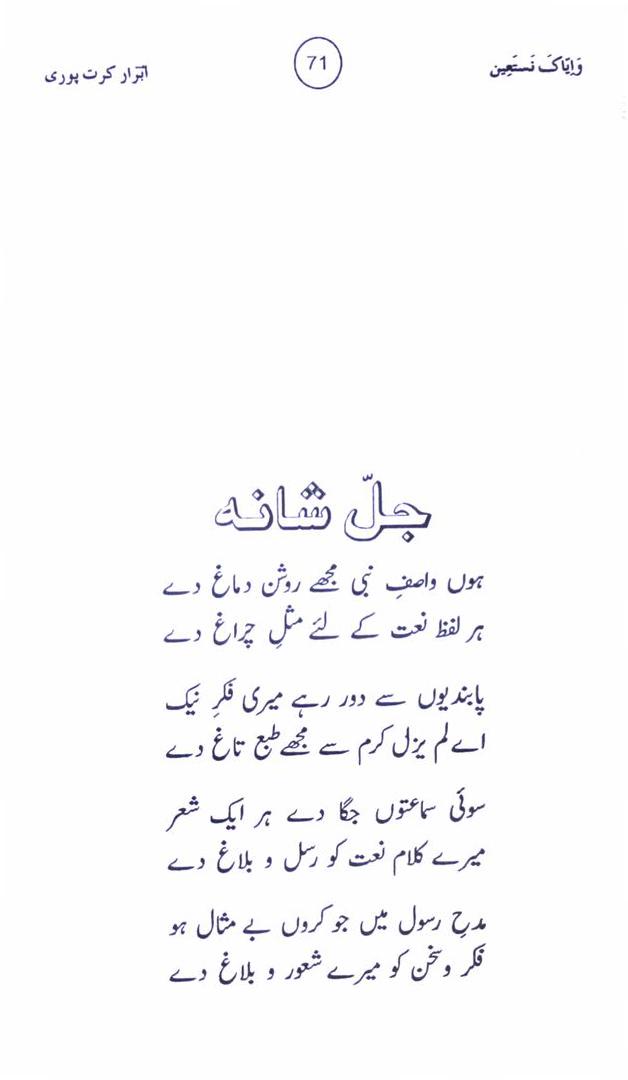 وَاِیّاکَ نَستَعِین
71
ابرار کرت پوری
جلّ شانہ
ہوں واصفِ نبی مجھے روشن دماغ دے
ہر لفظ نعت کے لئے مثلِ چراغ دے
پابندیوں سے دور رہے میری فکرِ نیک
اے لم یزل کرم سے مجھے طبع تاغ دے
سوئی سماعتوں جگا دے ہر ایک شعر
میرے کلام نعت کو رسل و بلاغ دے
مدحِ رسول میں جو کروں بے مثال ہو
فکر و سخن کو میرے شعور و بلاغ دے